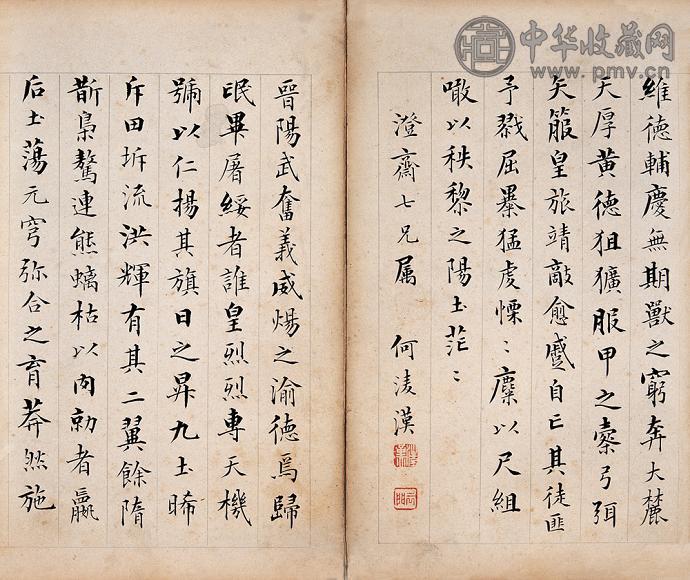 晉陽武奮義威煬之渝德焉歸
氓畢屠綏者誰皇烈烈專天機
號以仁揚其旗日之昇九土晞
斥田坼流洪輝有其二翼餘隋
斮梟驁連熊螭枯以肉勍者羸
后土蕩元穹弥合之育莽然施
維德輔慶無期獸之窮奔大麓
天厚黃德狙獷服甲之櫜弓弭
矢箙皇旅靖敵愈蹙自亡其徒匪
予戮屈暴猛虔慄〻麋以尺組
噉以秩黎之陽土茫〻
澄齋七兄属 何淩漢
中华收藏网
www.pmv.cn